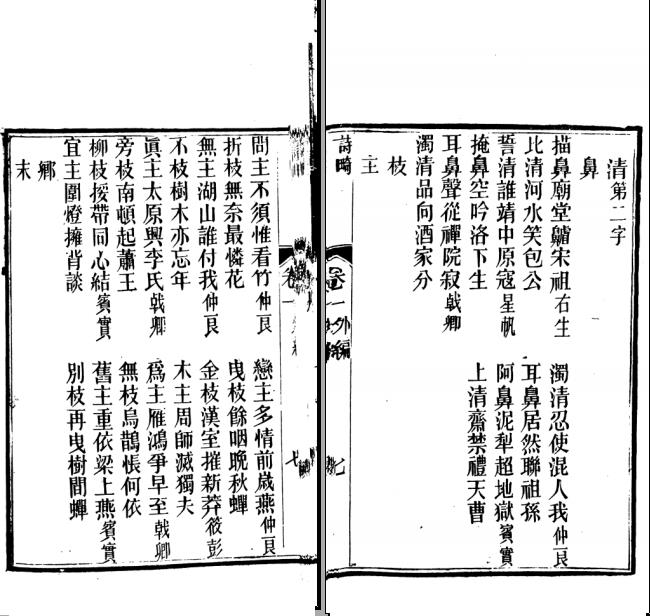 清第二字
鼻
描鼻廟堂宋祖右生 濁清忍使混人我仲良
比清河水笑包公 耳鼻居然聯祖孫
誓清誰靖中原寇星帆 阿鼻泥犁超地獄賓實
掩鼻空吟洛下生 上清齋禁禮天曹
耳鼻聲從禪院寂戟卿
濁清品向酒家分
枝
主
詩畸 卷一外編
問主不須惟看竹仲良 戀主多情前歲燕仲良
折枝無奈最憐花 曳枝餘咽晚秋蟬
無主湖山誰付我仲良 金枝漢室摧新莽筱彭
不枝樹木亦忘年 木主周師滅獨夫
眞主太原興李氏戟卿 爲主雁鴻爭早至戟卿
旁枝南頓起蕭王 無枝烏鵲悵何依
柳枝援帶同心結賓實 舊主重依梁上燕賓實
宜主圍燈擁背談 別枝再曳樹間蟬
鄉
末